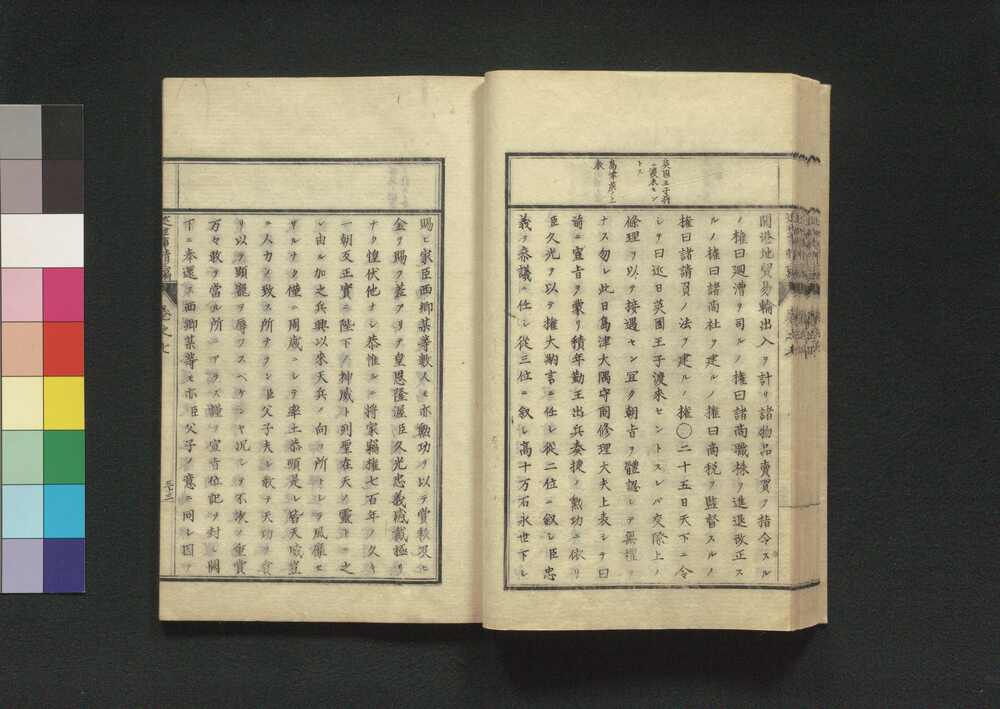 英国王子将
ニ渡来セン
トス
島津氏ノ上
表
開港地貿易輸出入ヲ計リ諸物品賣買ヲ指令スル
ノ権曰廻漕ヲ司ルノ権曰諸商職株ヲ進退改正ス
ルノ権曰諸商社ヲ建ルノ権曰商税ヲ監督スルノ
権曰諸請負ノ法ヲ建ルノ権〇二十五日天下ニ令
シテ曰近日英国王子渡来セントスレバ交際上ノ
條理ヲ以テ接遇セン宜ク朝旨ヲ體認シテ無禮ヲ
ナス勿レ此日島津大隅守同修理大夫上表シテ曰
前ニ宣旨ヲ蒙リ積年勤王出兵奏捷ノ勲功ニ依リ
臣久光ヲ以テ権大納言ニ任シ従二位ニ叙シ臣忠
義ヲ参議ニ任シ従三位ニ叙シ高十万石永世下シ
賜ヒ家臣西郷某等数人モ亦勲功ヲ以テ賞秩及ヒ
金ヲ賜フ差アリテ皇恩隆渥臣久光忠義感戴極リ
ナク惶伏他ナシ恭惟ルニ将家竊権七百年ノ久キ
一朝反正實ニ陛下ノ神威ト列聖在天ノ靈トニ之
レ由ル加之兵興以来天兵ノ向フ所一トシテ風靡セ
サルナク僅ニ周歳ニシテ率土恭順是レ皆天威豈
ニ人力ノ致ス所ナランヤ臣父子夫レ敢テ天功ヲ貪
リ以テ顕寵ヲ辱フスベケンヤ况シテ不次ノ重賞
万々敢テ當ル所ニアラス謹テ宣旨位記ヲ封シ闕
下ニ奉還ス西郷某等モ亦臣父子ノ意ニ同シ固ク
巻之七